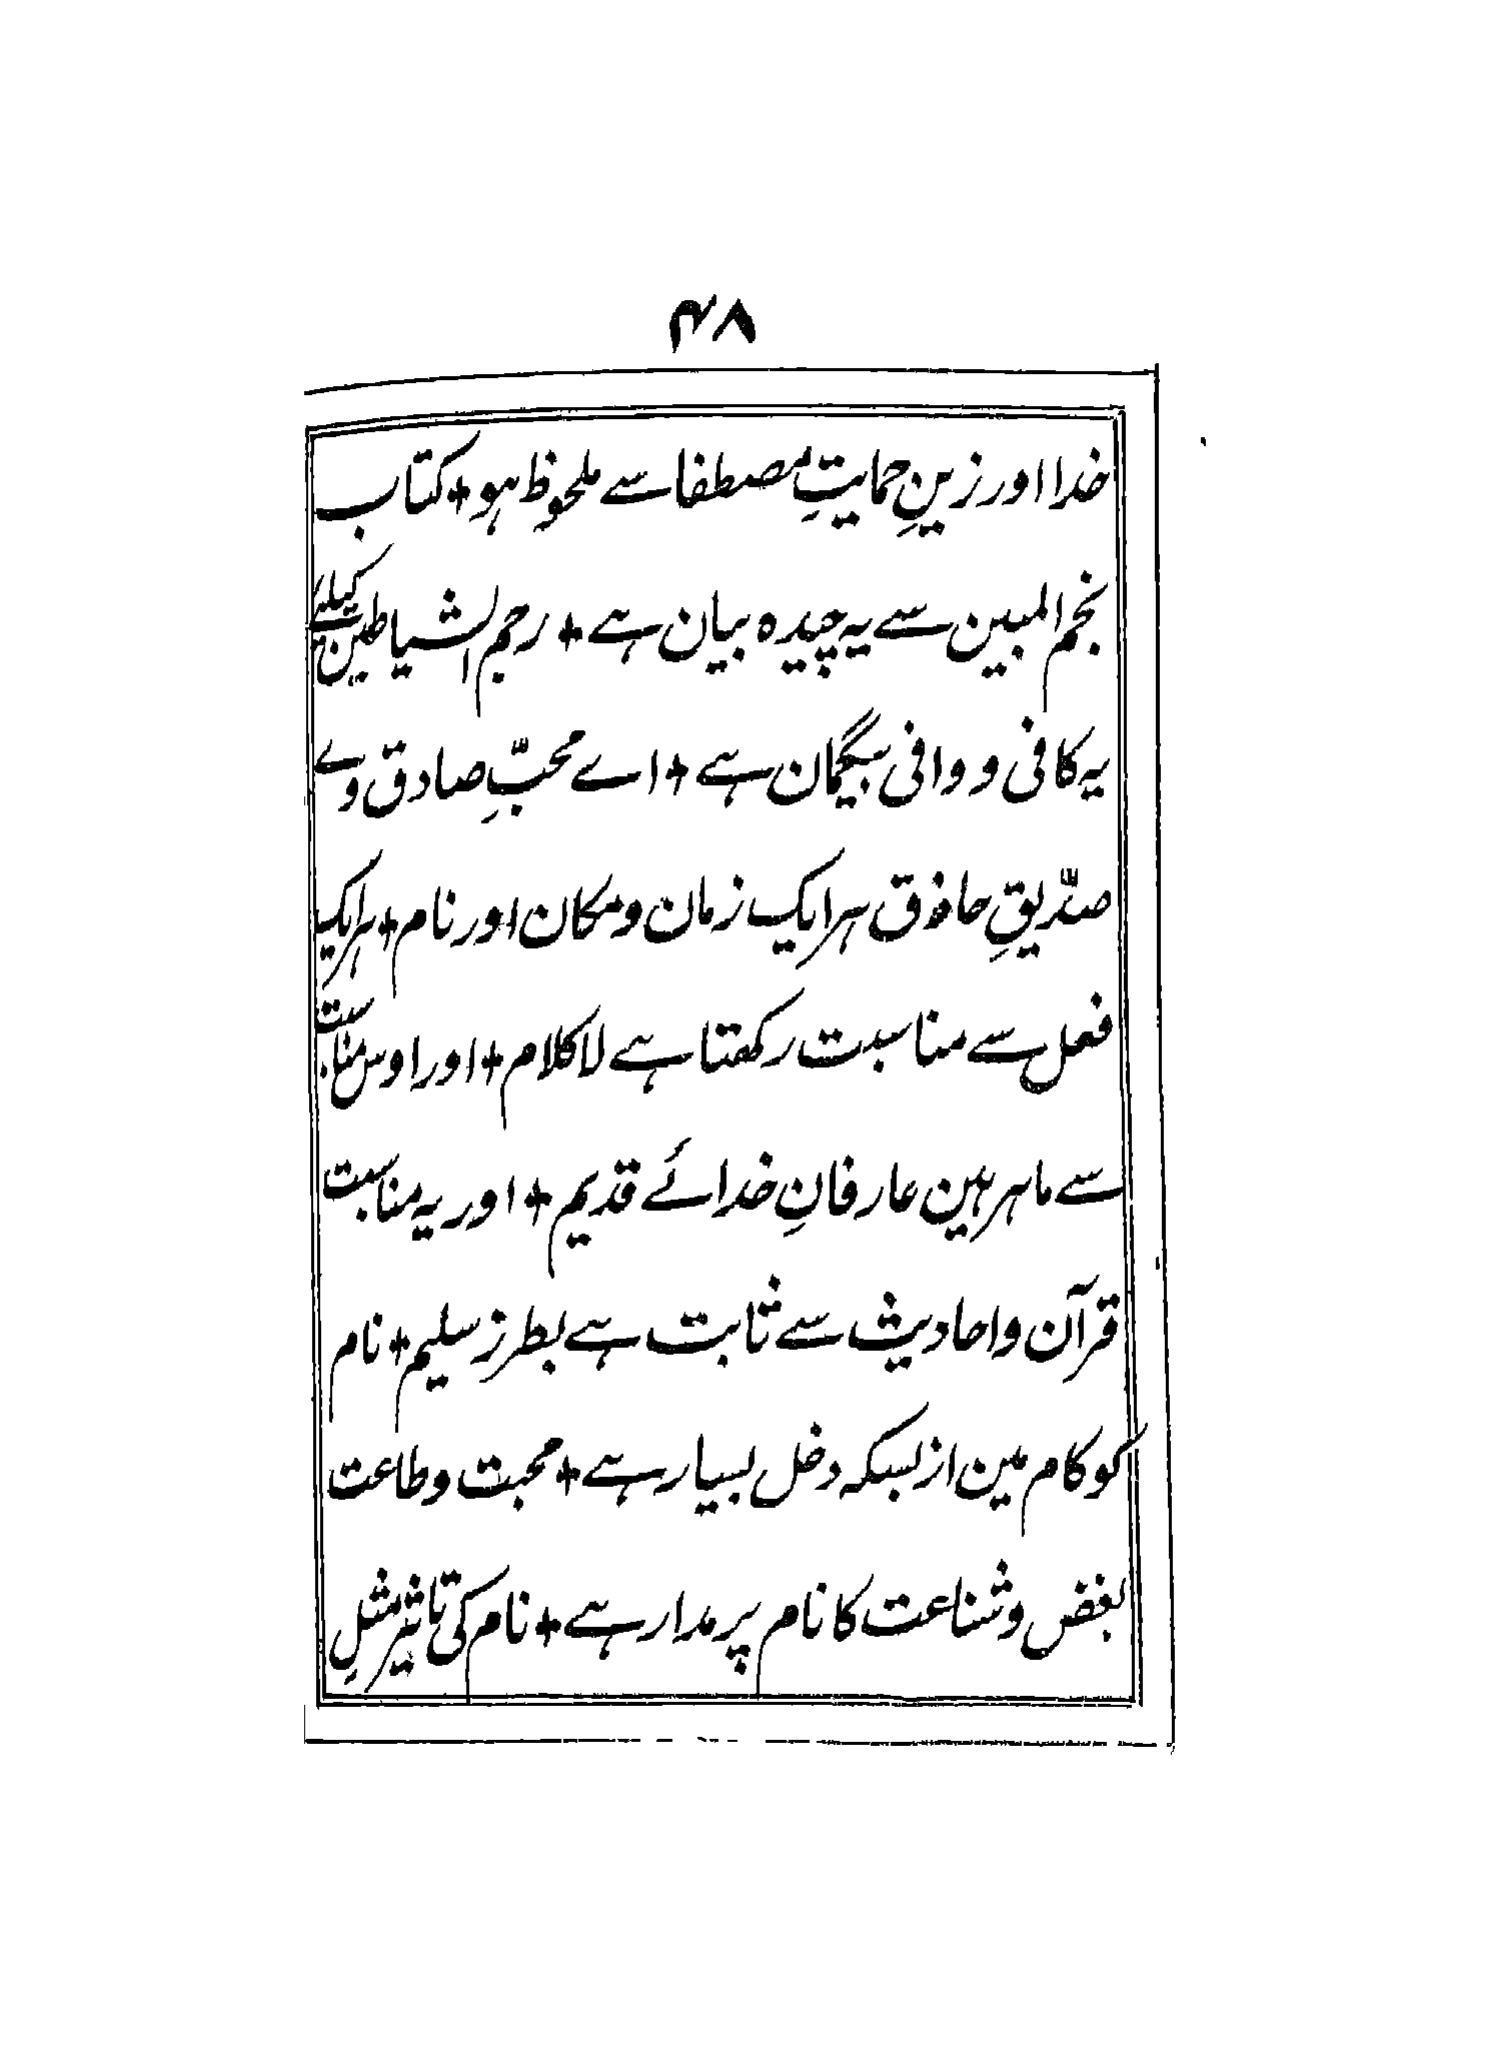 ۴۸
خدا اور زینِ حمایتِ مصطفا سے ملحوظ ہو + کتاب
نجم المبین سے یہ چیدہ بیان ہے + رجم الشیاطین کیلئے
یہ کافی و وافی بیگمان ہے + اے محبِّ صادق وے
صدّیقِ حاذق ہر ایک زمان و مکان اور نام + ہر ایک
فعل سے مناسبت رکھتا ہے لا کلام + اور اوس مناسبت
سے ماہر ہین عارفانِ خدائے قدیم + اور یہ مناسبت
قرآن و احادیث سے ثابت ہے بطرز سلیم + نام
کو کام مین از بسکہ دخل بسیار ہے + محبت و طاعت
بغض و شناعت کا نام پر مدار ہے + نام کی تاثیر مثلِ